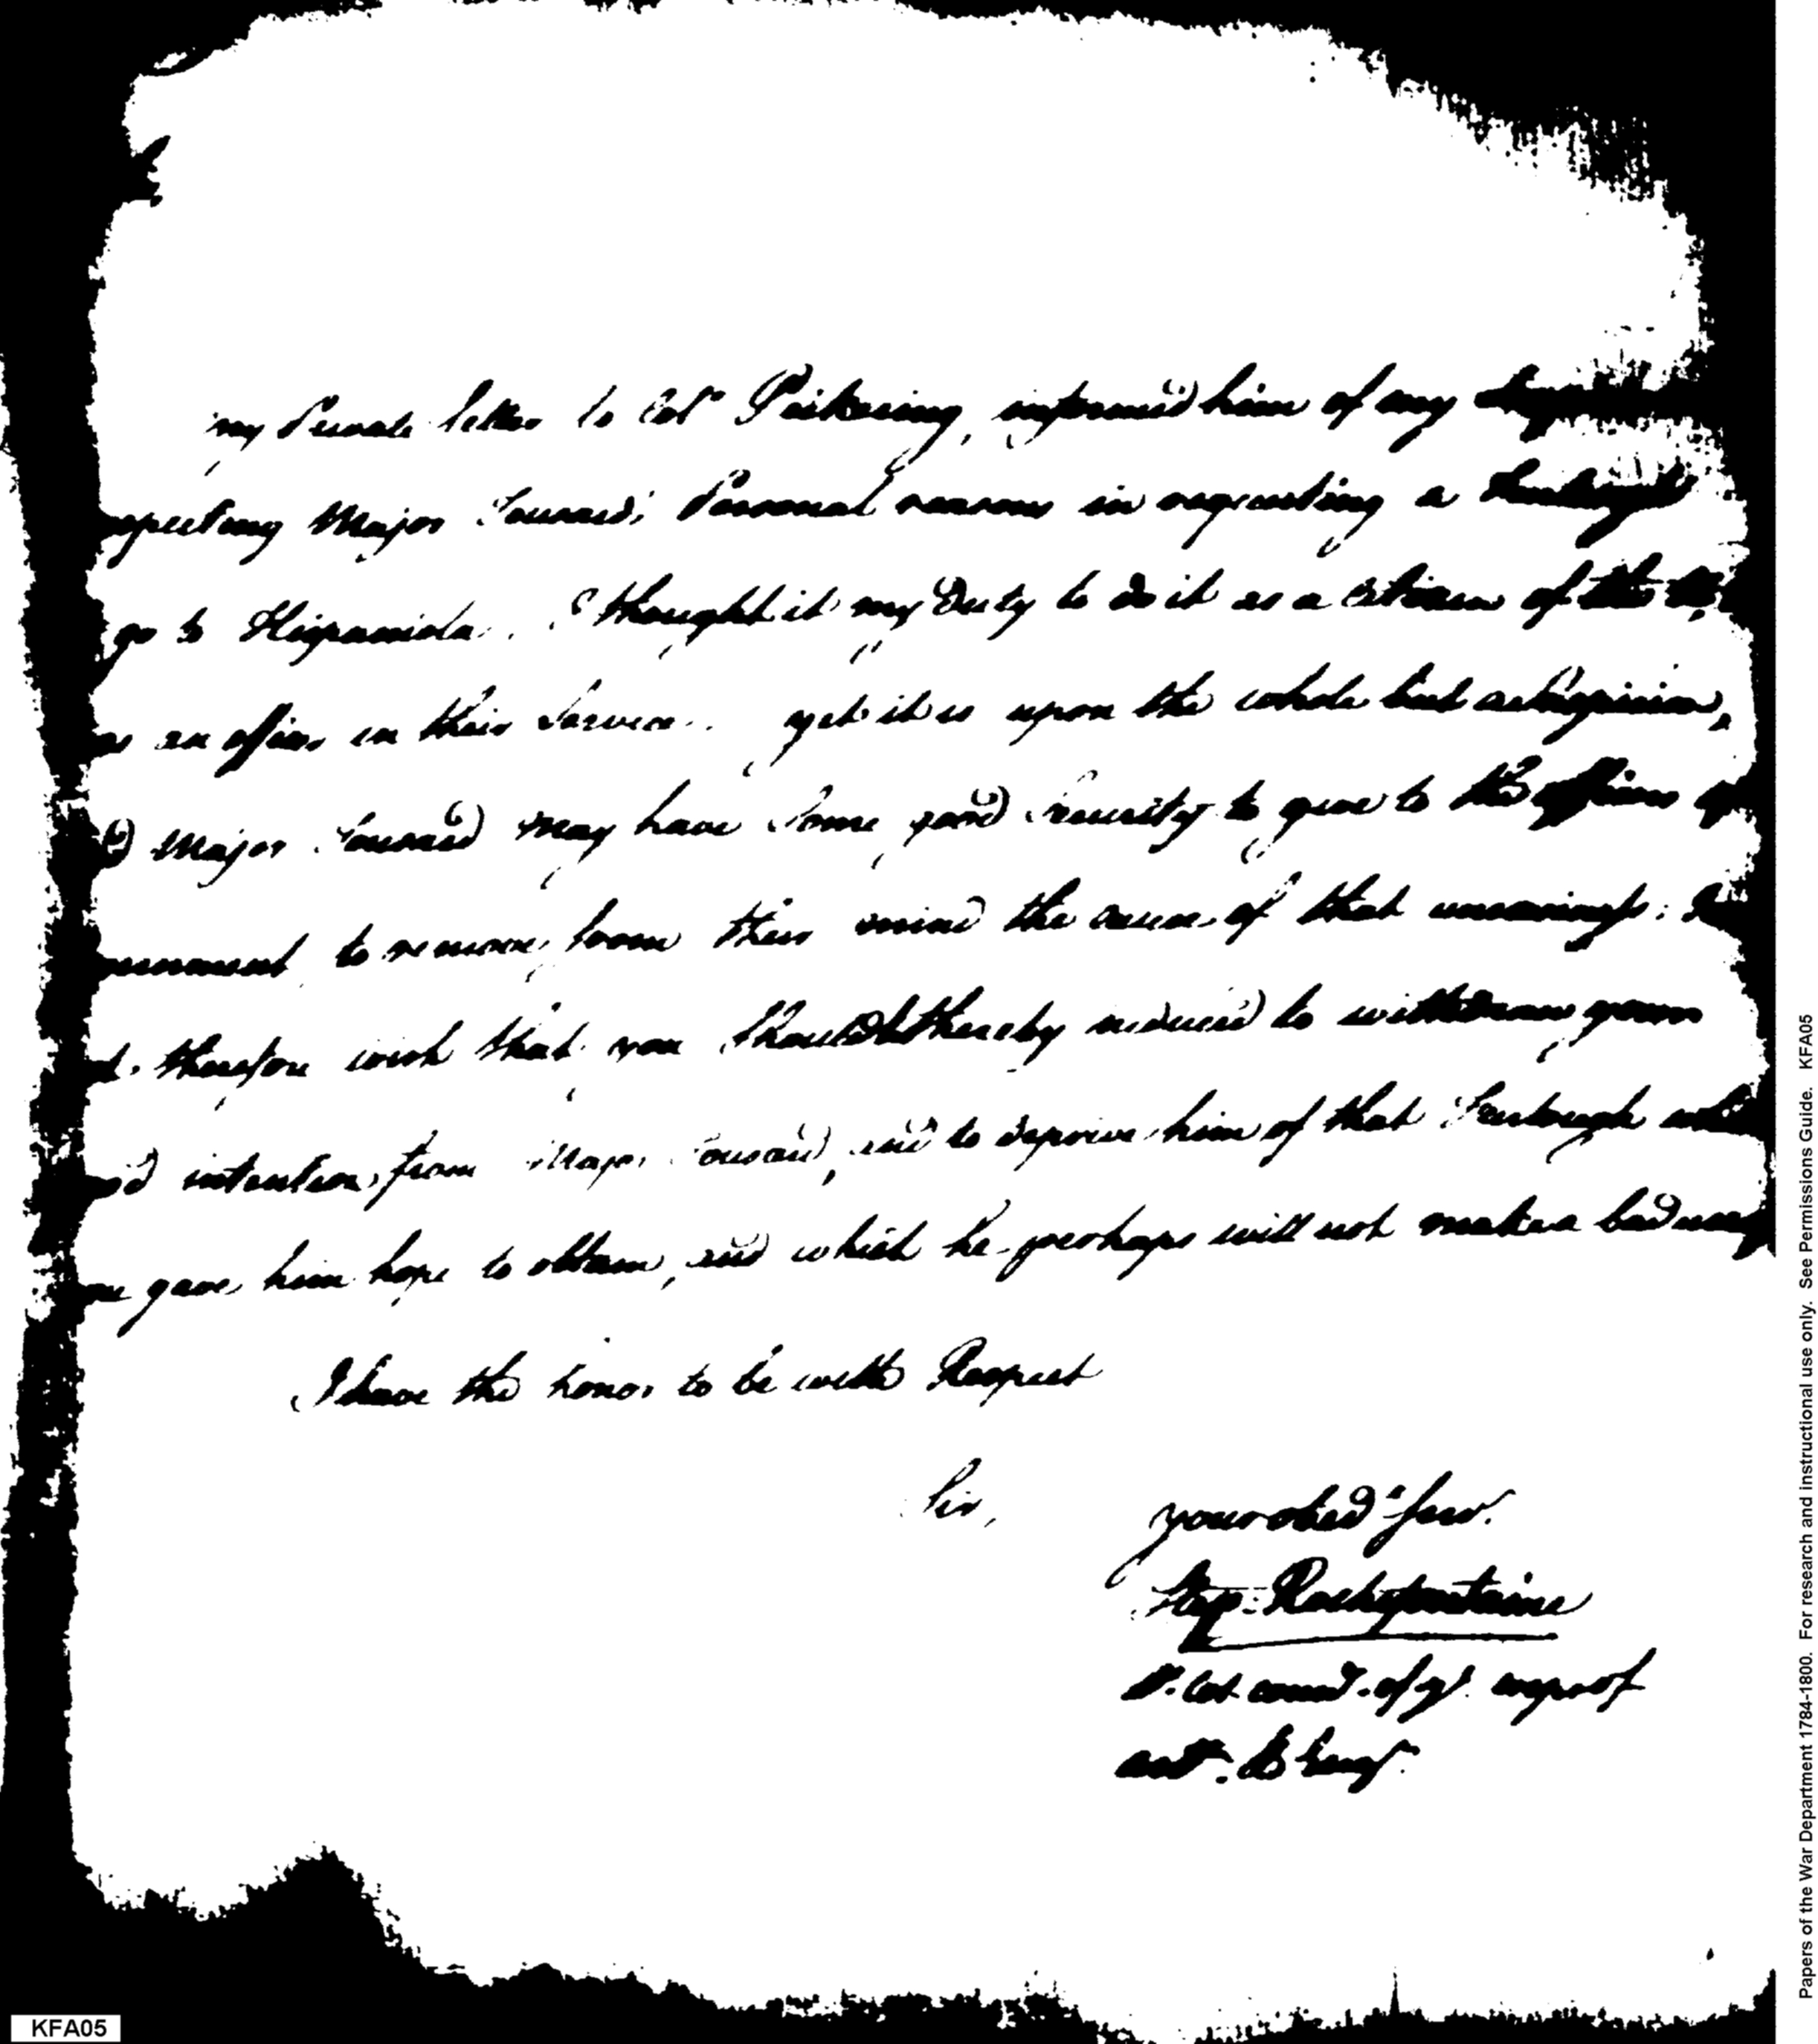 my Private letter to Col Pickering, informed him of my
specting Major Tousard's Personal reasons in requesting a furlough
go to Hispaniola. I thought it my Duty to do it as a citizen of the
as an officer in this Service. yet it is upon the whole but a Suspicion,
Major Tousard may have Some good Security to give to the officers of
ernment to remove from their mind the causes of that uneasiness;
therefore wish that you should thereby induced to withdraw your
good intention from Major Tousard, and to deprive him of that furlough
gave him hope to obtain, and which he perhaps will not make a bad use
I have the honor to be with Respect
Sir,
your obed. Serv.
Step. Rochefontaine
Lt. Col. comd. of ye. corps of
art. & Eng.
KFA05
Papers of the War Department 1784-1800. For research and instructional use only. See Permissions Guide. KFA05